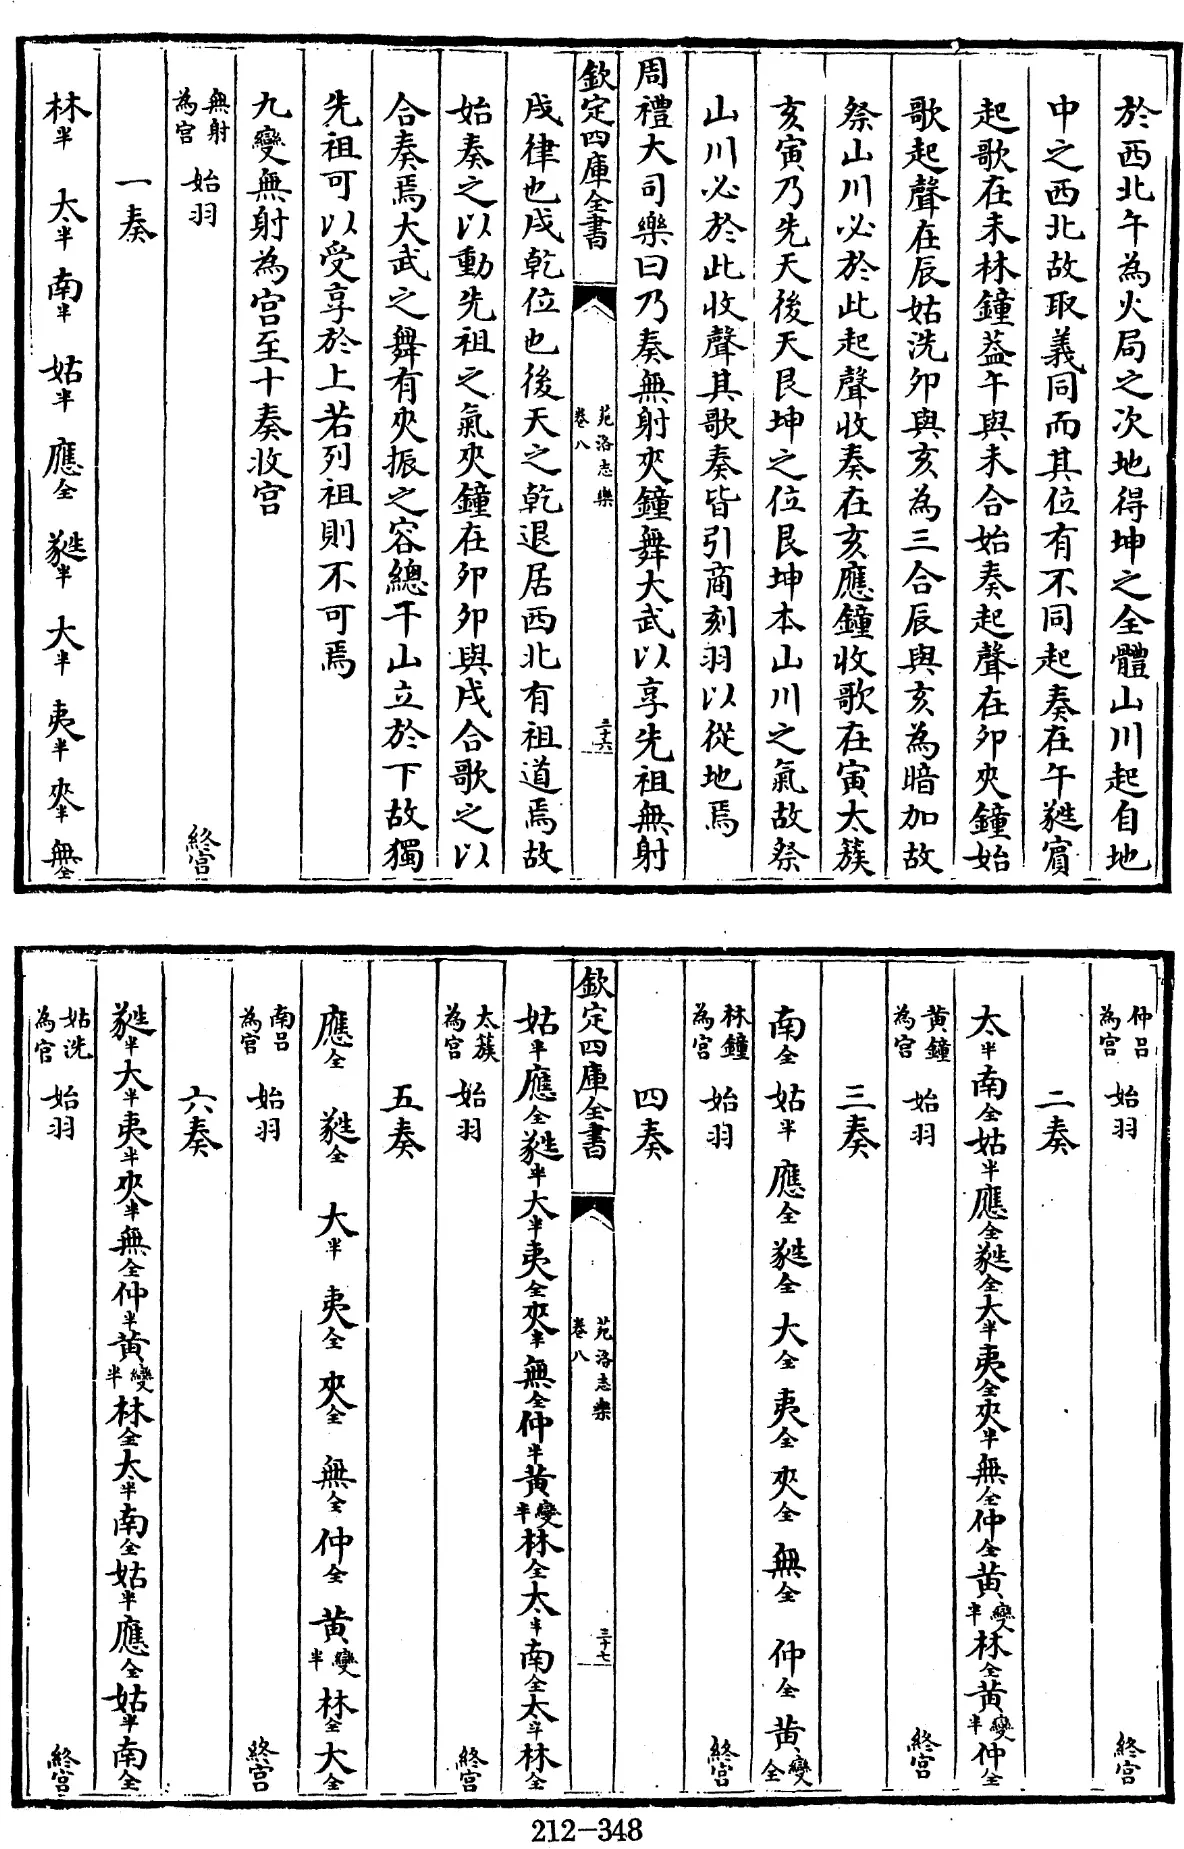 於西北午為火局之次地得坤之全體山川起自地
中之西北故取義同而其位有不同起奏在午蕤賓
起歌在未林鐘葢午與未合始奏起聲在卯夾鐘始
歌起聲在辰姑洗卯與亥為三合辰與亥為暗加故
祭山川必於此起聲收奏在亥應鐘收歌在寅太簇
亥寅乃先天後天艮坤之位艮坤本山川之氣故祭
山川必於此收聲其歌奏皆引商刻羽以從地焉
周禮大司樂曰乃奏無射夾鐘舞大武以享先祖無射
欽定四庫全書
苑洛志樂
卷八
三十六
戌律也戌乾位也後天之乾退居西北有祖道焉故
始奏之以動先祖之氣夾鐘在卯卯與戌合歌之以
合奏焉大武之舞有夾振之容總干山立於下故獨
先祖可以受享於上若列祖則不可焉
九變無射為宫至十奏收宫
無射為宫 始羽 終宫
一奏
林半 太半 南半 姑半 應全 蕤半 大半 夷半 夾半 無全
仲呂為宫 始羽 終宫
二奏
太半南全姑半應全蕤全大半夷全夾半無全仲全黄變半林全黄變半仲全
黄鐘為宫 始羽 終宫
三奏
南全 姑半 應全 蕤全 大全 夷全 夾全 無全 仲全 黄變全
林鐘為宫 始羽 終宫
四奏
欽定四庫全書
苑洛志樂
卷八
三十七
姑半應全蕤半大半夷全夾半無全仲半黄變半林全太半南全太半林全
太簇為宫 始羽 終宫
五奏
應全 蕤全 大半 夷全 夾全 無全 仲全 黄變半 林全 太全
南呂為宫 始羽 終宫
六奏
蕤半大半夷半夾半無全仲半黄變半林全太半南全姑半應全姑半南全
姑洗為宫 始羽 終宫
212-348